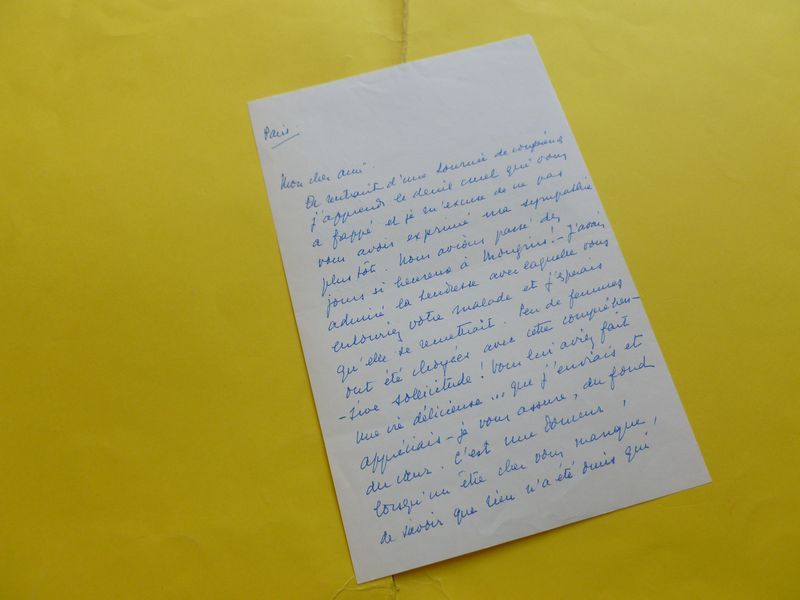 Paris.
Mon cher ami.
De rentrant d'une tournée de conférences
j'apprends le deuil cruel qui vous
a frappé et je m'excuse de ne pas
vous avoir exprimé ma sympathie
plus tôt. Nous avions passé des
jours si heureux à Mougins! – J'avais
admiré la tendresse avec laquelle vous
entouriez votre malade et j'espérais
qu'elle se remettrait. Peu de femmes
ont été choyées avec cette compréhen-
-sive sollicitude! Vous lui aviez fait
une vie délicieuse... que j'enviais et
appréciais – je vous assure, du fond
du cœur. C'est une douceur,
lorsqu'un être cher vous manque,
de savoir que rien n'a été omis qui